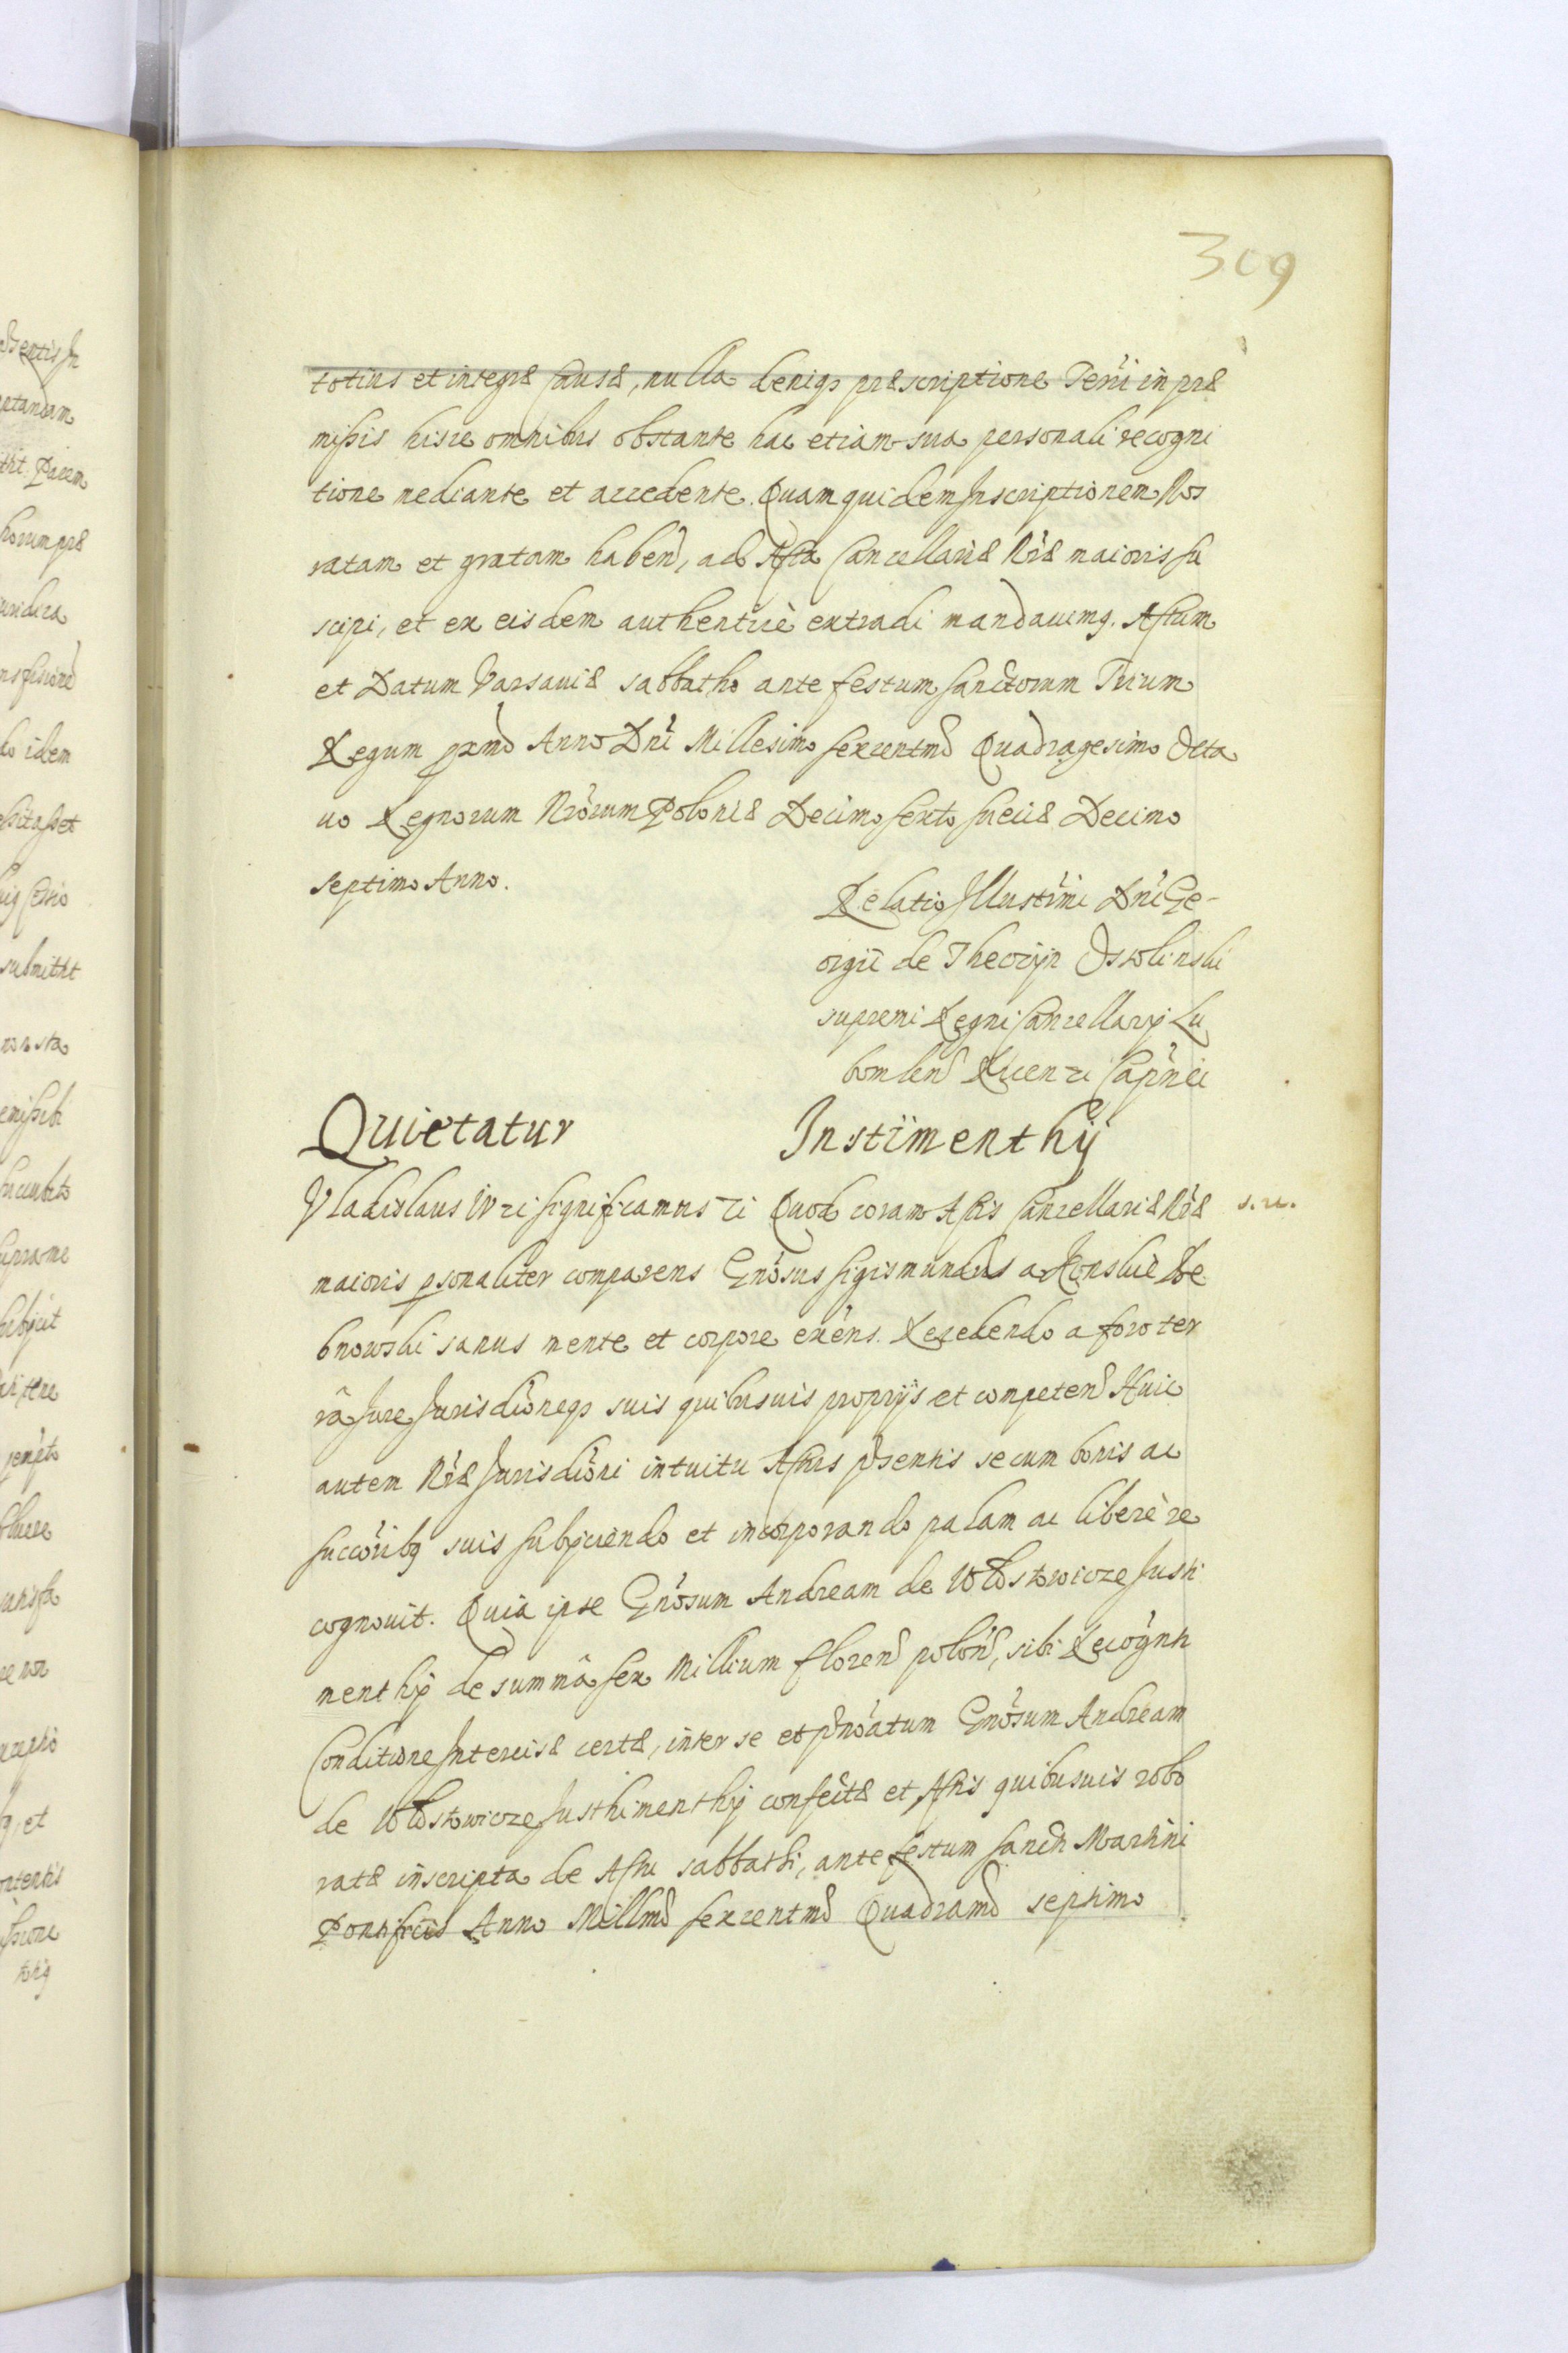 309
totius et integræ causæ, nulla deniqз præscriptione Terri in præ
missis hisce omnibus obstante hac etiam sua personali recogni
tione mediante et accedente. Quam quidem Inscriptionem Nos
ratam et gratam haben, ad Acta Cancellariæ Nræ maioris su
scipi, et ex eisdem authenticè extradi mandauimq. Actum
et Datum Varsauiæ sabbatho ante festum Sanctorum Trium
Regum pxmo Anno Dni Millesimo sexcentmo Quadragesimo Octa
uo Regnorum Nrorum Poloniæ Decimo sexto Sueciæ Decimo
septimo Anno.
Relatio Illustrmi Dni Ge-
orgii de Theczyn Ossolinski
supremi Regni Cancellarij Lu
bomlen Kcen zc Capnei
Quietatur Instimenthÿ
Vladislaus IV zc significamus zc Quod coram Actis Cancellariæ Nræ s. u.
maioris psonaliter comparens Gnosus Sigismundus a Konskie De
bnowski sanus mente et corpore exens. Recedendo a foro ter
râ Jure Jurisdioneqз suis quibusuis proprijs et competen Huic
autem Nræ Jurisdioni intuitu Actus prsentis se cum bonis ac
succoribq suis subijciendo et incorporando palam ac liberè re
cognouit. Quia ipse Gnosum Andream de Wlostowicze Justi
menthij de summâ sex Millium floren polon, sibi Recognti
Conditione Intercisæ certæ, inter se et pnoatum Gnosum Andream
de Wlostowicze Justhimenthij confectæ et Actis quibusuis robo
ratæ inscripta de Actu sabbathi, ante festum Sancti Martini
Pontificis Anno Millmo sexcentmo Quadramo septimo